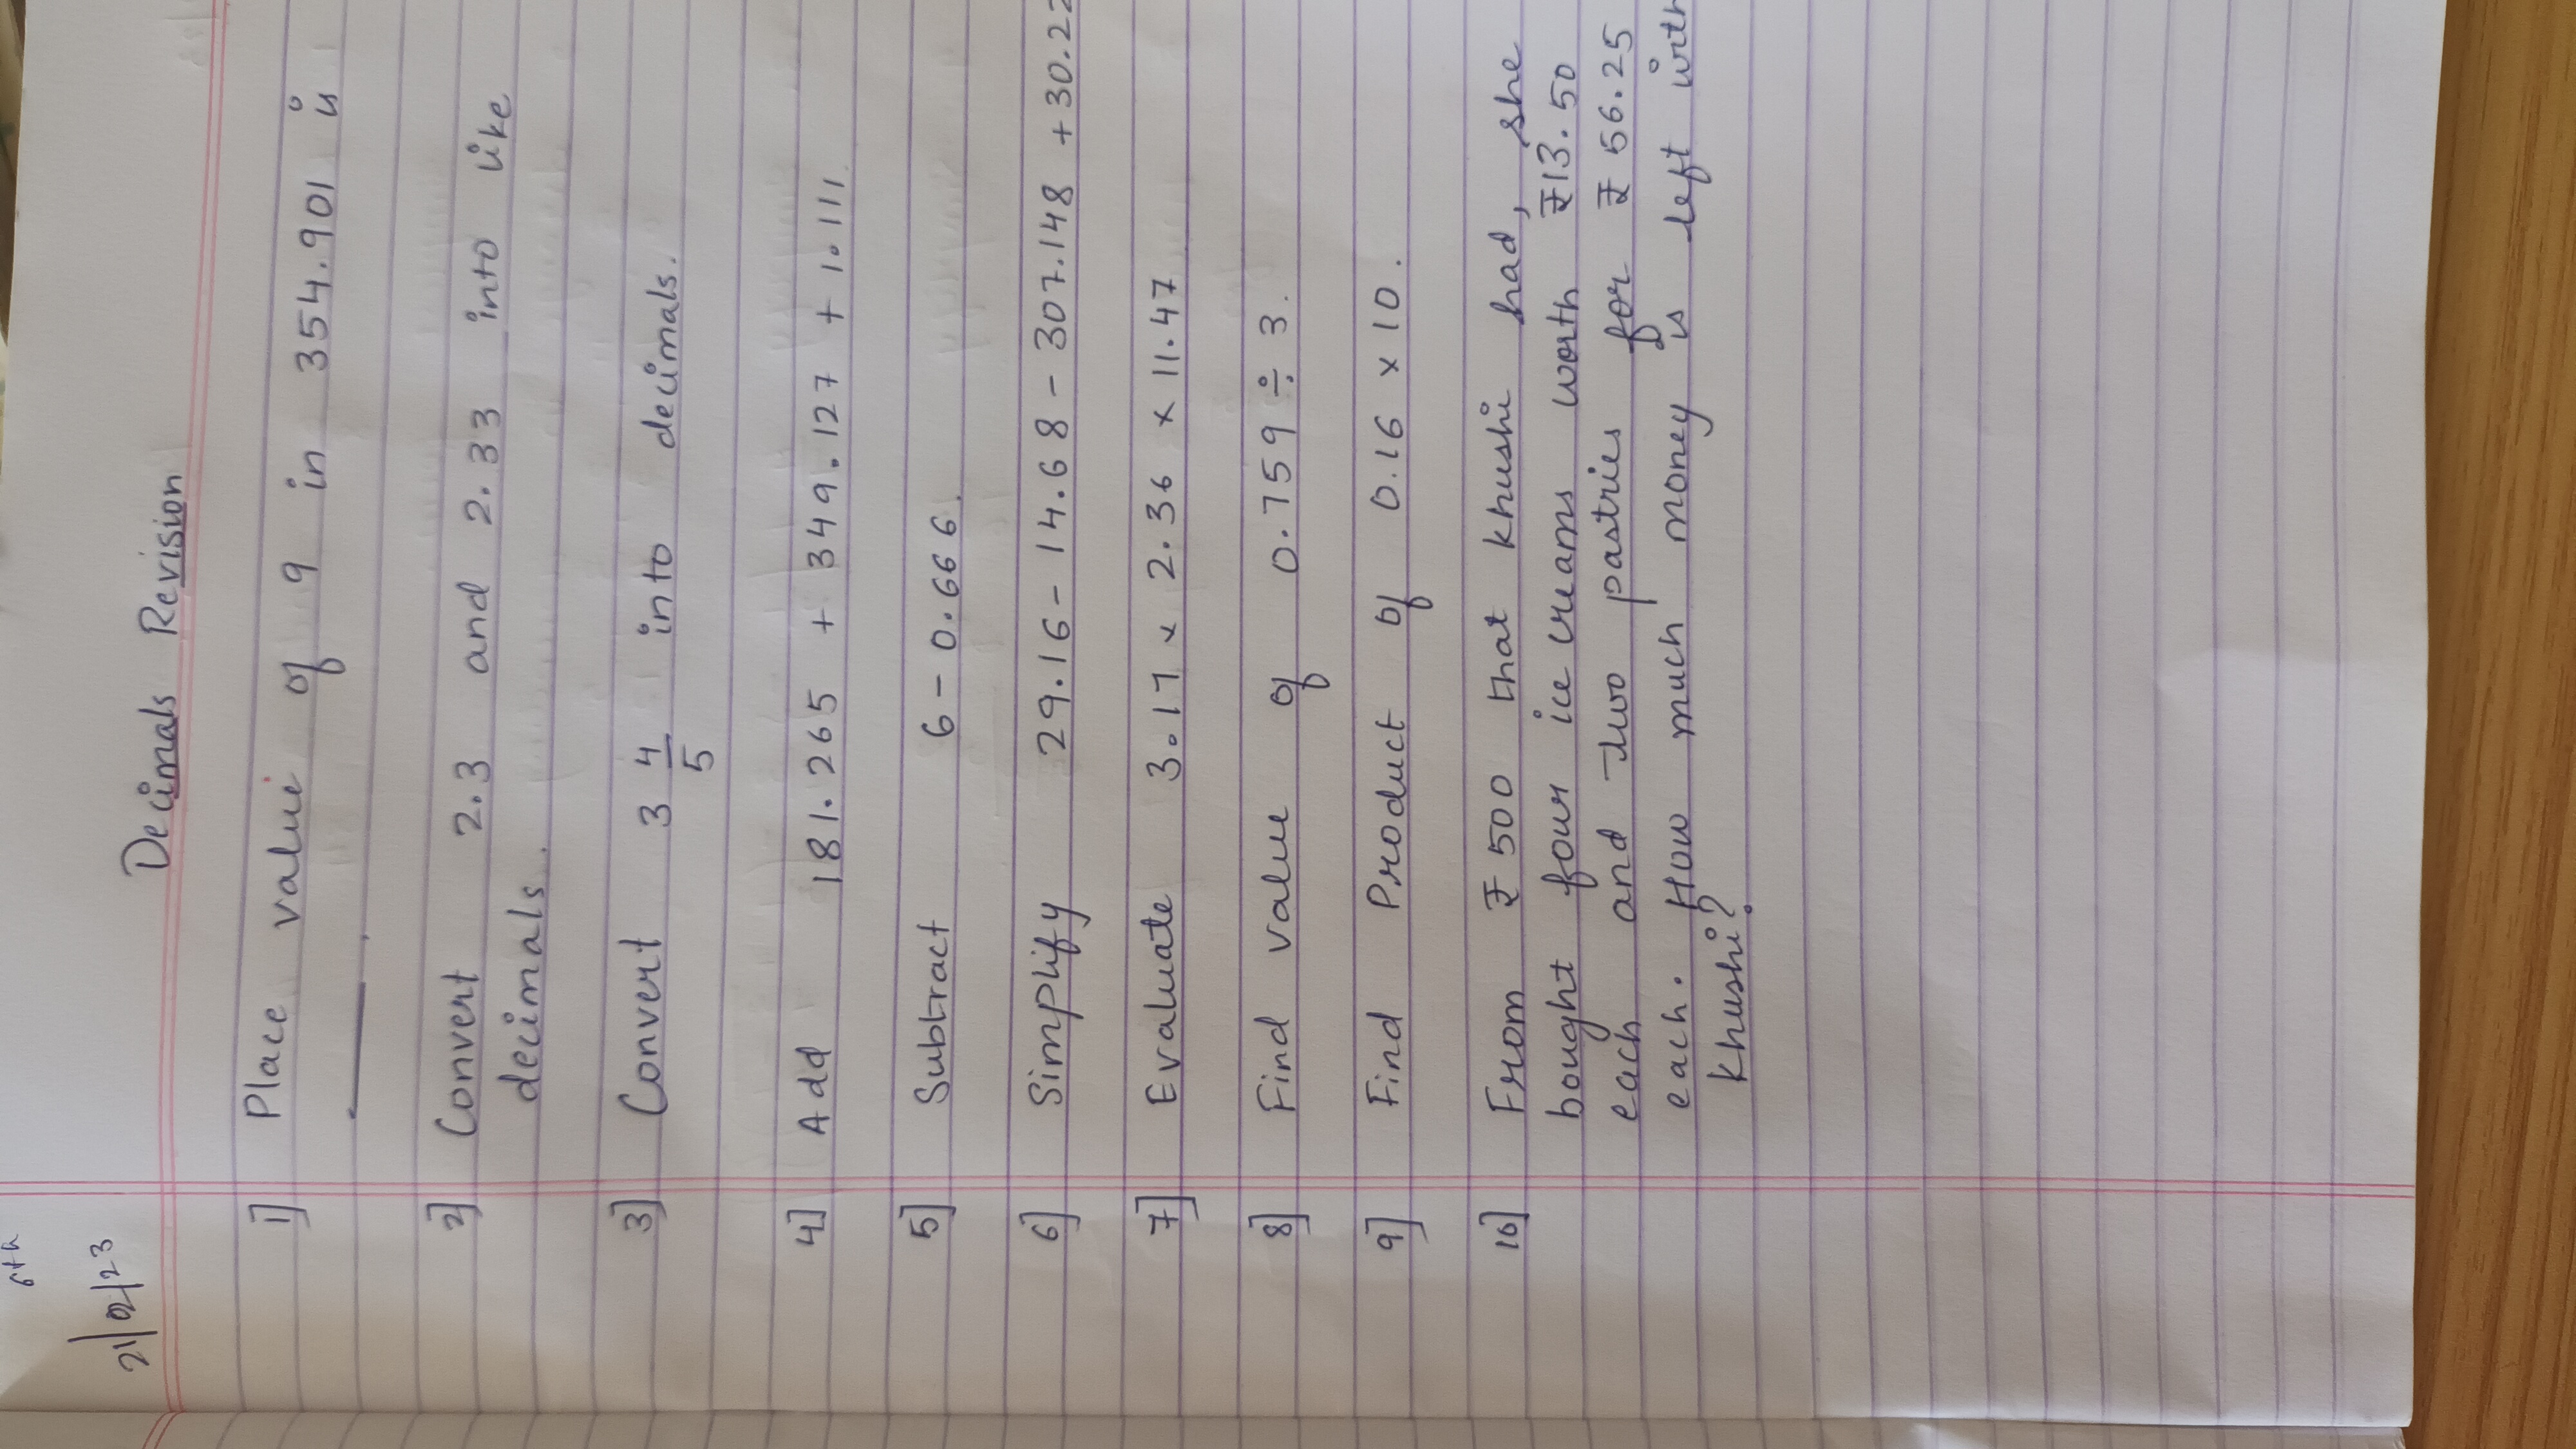 6th
21/02/23
Decimals Revision
1] Place value of 9 in 354.901 is
____.
2] Convert 2.3 and 2.33 into like
decimals.
3] Convert 3 4/5 into decimals.
4] Add 181.265 + 349.127 + 1.111
5] Subtract 6 - 0.666
6] Simplify 29.16 - 14.68 - 307.148 + 30.22
7] Evaluate 3.17 x 2.36 x 11.47
8] Find value of 0.759 ÷ 3.
9] Find Product of 0.16 x 10.
10] From ₹ 500 that khushi had, she
bought four ice creams worth ₹13.50
each and two pastries for ₹ 56.25
each. How much money is left with
khushi?